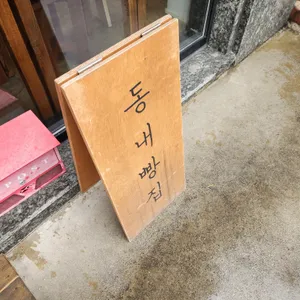 동네빵집
POST